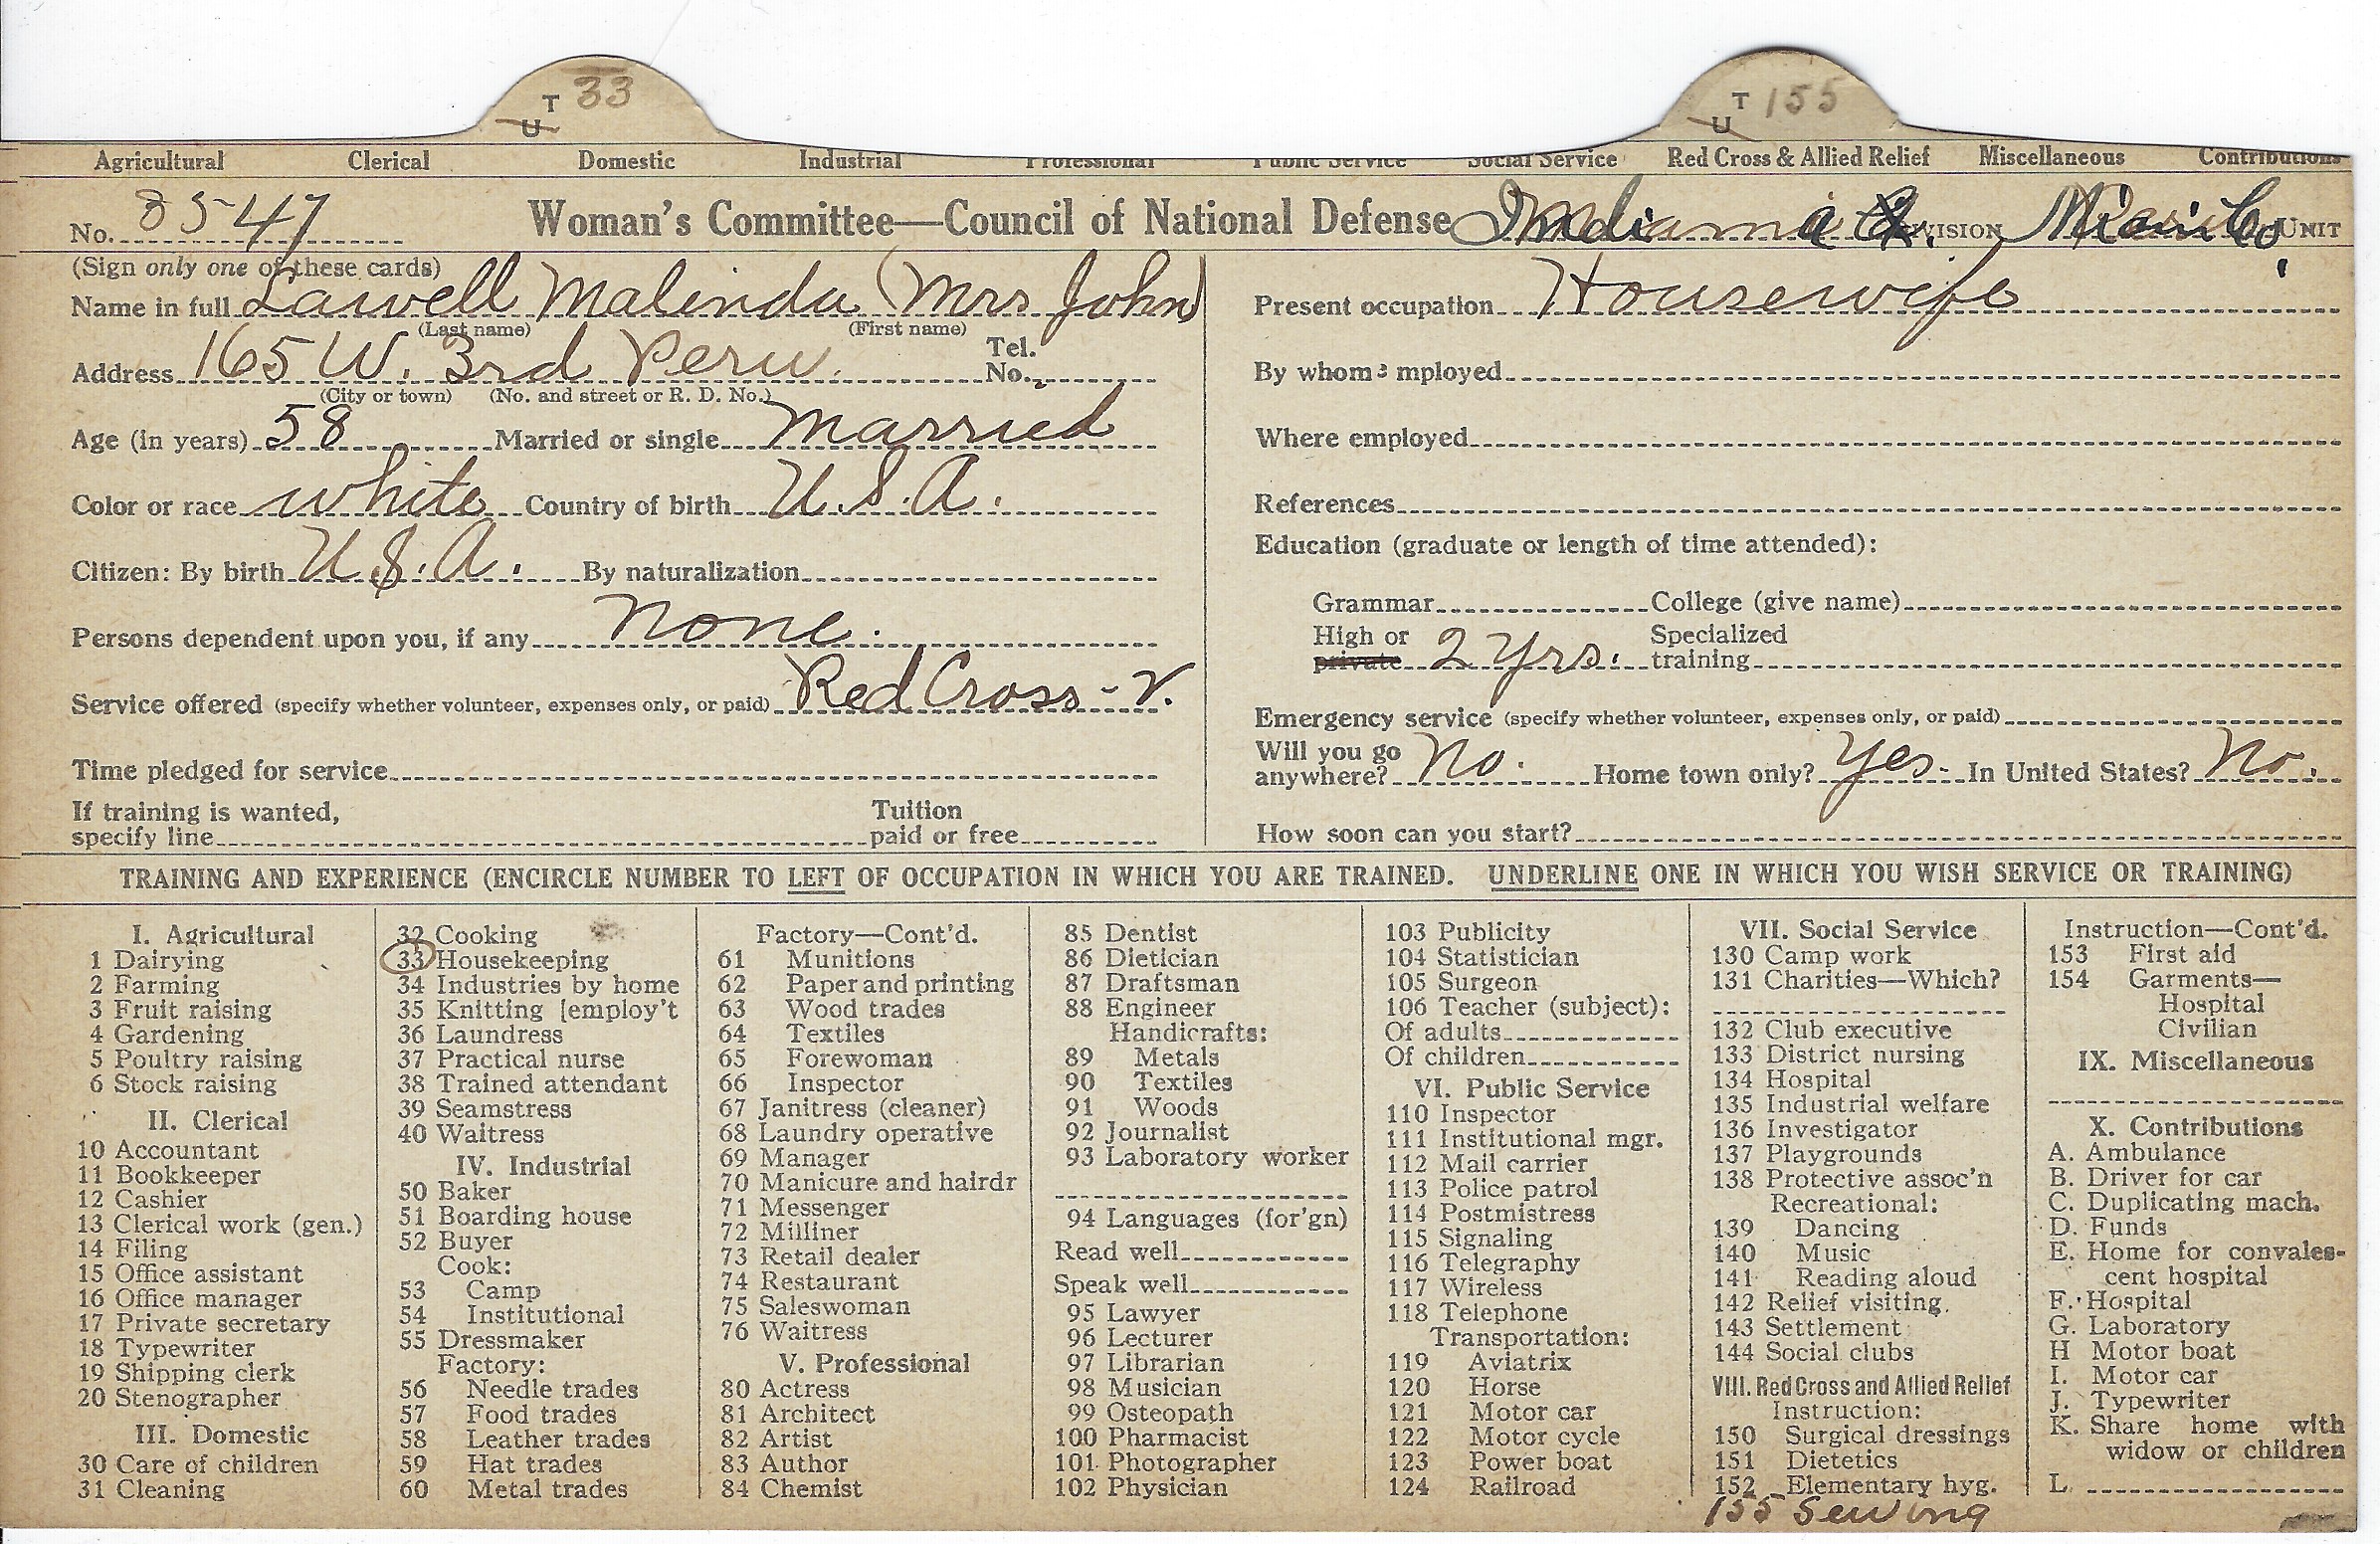 T 33 T 155
U U
Agricultural Clerical Domestic Industrial Professional Public Service Social Service Red Cross & Allied Relief Miscellaneous Contributions
No. 8547 Woman's Committee—Council of National Defense Indiana DIVISION Miami Co. UNIT
(Sign only one of these cards)
Name in full Lawell Malinda (Mrs John)
(Last name) (First name)
Address 165 W. 3rd Peru. Tel. No.
(City or town) (No. and street or R. D. No.)
Age (in years) 58 Married or single Married
Color or race white Country of birth U.S.A.
Citizen: By birth U.S.A. By naturalization
Persons dependent upon you, if any None.
Service offered (specify whether volunteer, expenses only, or paid) Red Cross - V.
Time pledged for service
If training is wanted, Tuition
specify line paid or free
Present occupation Housewife
By whom employed
Where employed
References
Education (graduate or length of time attended):
Grammar College (give name)
High or Specialized
private 2 yrs. training
Emergency service (specify whether volunteer, expenses only, or paid)
Will you go
anywhere? No. Home town only? Yes- In United States? No.
How soon can you start?
TRAINING AND EXPERIENCE (ENCIRCLE NUMBER TO LEFT OF OCCUPATION IN WHICH YOU ARE TRAINED. UNDERLINE ONE IN WHICH YOU WISH SERVICE OR TRAINING)
I. Agricultural
1 Dairying
2 Farming
3 Fruit raising
4 Gardening
5 Poultry raising
6 Stock raising
II. Clerical
10 Accountant
11 Bookkeeper
12 Cashier
13 Clerical work (gen.)
14 Filing
15 Office assistant
16 Office manager
17 Private secretary
18 Typewriter
19 Shipping clerk
20 Stenographer
III. Domestic
30 Care of children
31 Cleaning
32 Cooking
33 Housekeeping
34 Industries by home
35 Knitting [employ't
36 Laundress
37 Practical nurse
38 Trained attendant
39 Seamstress
40 Waitress
IV. Industrial
50 Baker
51 Boarding house
52 Buyer
Cook:
53 Camp
54 Institutional
55 Dressmaker
Factory:
56 Needle trades
57 Food trades
58 Leather trades
59 Hat trades
60 Metal trades
Factory—Cont'd.
61 Munitions
62 Paper and printing
63 Wood trades
64 Textiles
65 Forewoman
66 Inspector
67 Janitress (cleaner)
68 Laundry operative
69 Manager
70 Manicure and hairdr
71 Messenger
72 Milliner
73 Retail dealer
74 Restaurant
75 Saleswoman
76 Waitress
V. Professional
80 Actress
81 Architect
82 Artist
83 Author
84 Chemist
85 Dentist
86 Dietician
87 Draftsman
88 Engineer
Handicrafts:
89 Metals
90 Textiles
91 Woods
92 Journalist
93 Laboratory worker
94 Languages (for'gn)
Read well
Speak well
95 Lawyer
96 Lecturer
97 Librarian
98 Musician
99 Osteopath
100 Pharmacist
101 Photographer
102 Physician
103 Publicity
104 Statistician
105 Surgeon
106 Teacher (subject):
Of adults
Of children
VI. Public Service
110 Inspector
111 Institutional mgr.
112 Mail carrier
113 Police patrol
114 Postmistress
115 Signaling
116 Telegraphy
117 Wireless
118 Telephone
Transportation:
119 Aviatrix
120 Horse
121 Motor car
122 Motor cycle
123 Power boat
124 Railroad
VII. Social Service
130 Camp work
131 Charities—Which?
132 Club executive
133 District nursing
134 Hospital
135 Industrial welfare
136 Investigator
137 Playgrounds
138 Protective assoc'n
Recreational:
139 Dancing
140 Music
141 Reading aloud
142 Relief visiting
143 Settlement
144 Social clubs
VIII. Red Cross and Allied Relief
Instruction:
150 Surgical dressings
151 Dietetics
152 Elementary hyg.
155 Sewing
Instruction—Cont'd.
153 First aid
154 Garments—
Hospital
Civilian
IX. Miscellaneous
X. Contributions
A. Ambulance
B. Driver for car
C. Duplicating mach.
D. Funds
E. Home for convales-
cent hospital
F. Hospital
G. Laboratory
H Motor boat
I. Motor car
J. Typewriter
K. Share home with
widow or children
L.